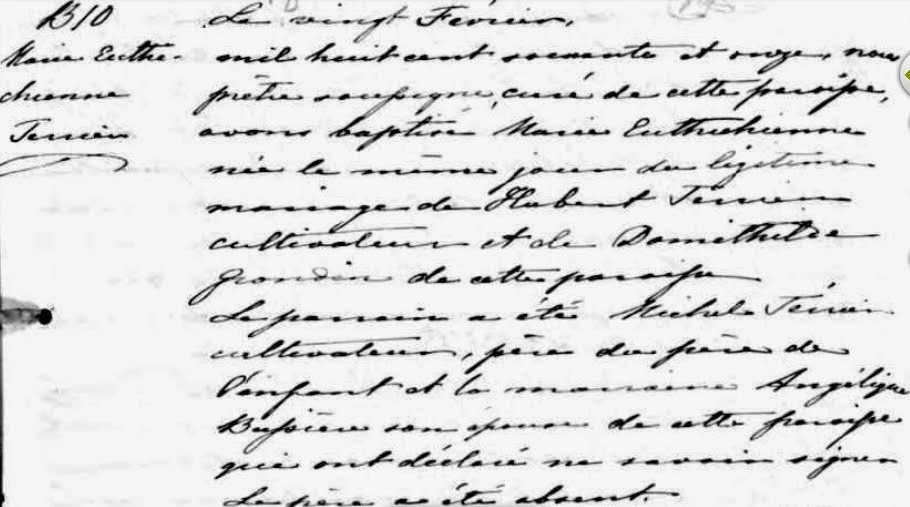 B10
Marie Euthe-
chienne
Terrien
Le vingt Février,
mil huit cent soixante et onze, nous
prêtre soussigné, curé de cette paroisse,
avons baptisé Marie Euthechienne
née le même jour du légitime
mariage de Hubert Terrien
cultivateur et de Domithilde
Grondin de cette paroisse
Le parrain a été Michel Terrien
cultivateur, père du père de
l'enfant et la marraine Angélique
Bussière son épouse de cette paroisse
qui ont déclaré ne savoir signer
Le père a été absent.